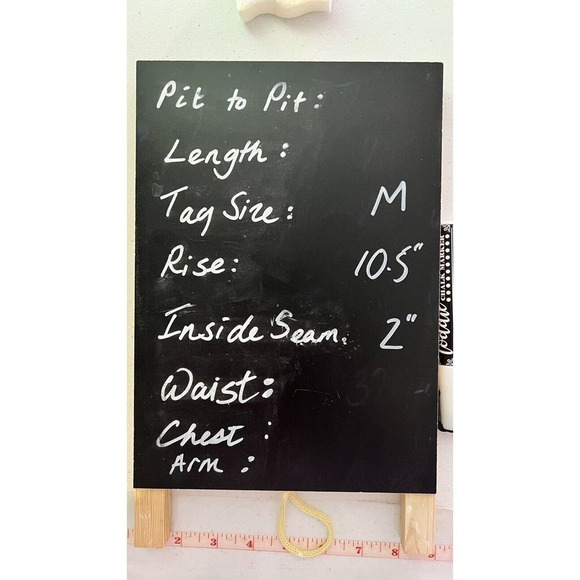 Pit to Pit:
Length:
Tag Size: M
Rise: 10.5"
Inside Seam. 2"
Waist:
Chest:
Arm:
CHALK MARKER
1 2 3 4 5 6 7 8 9